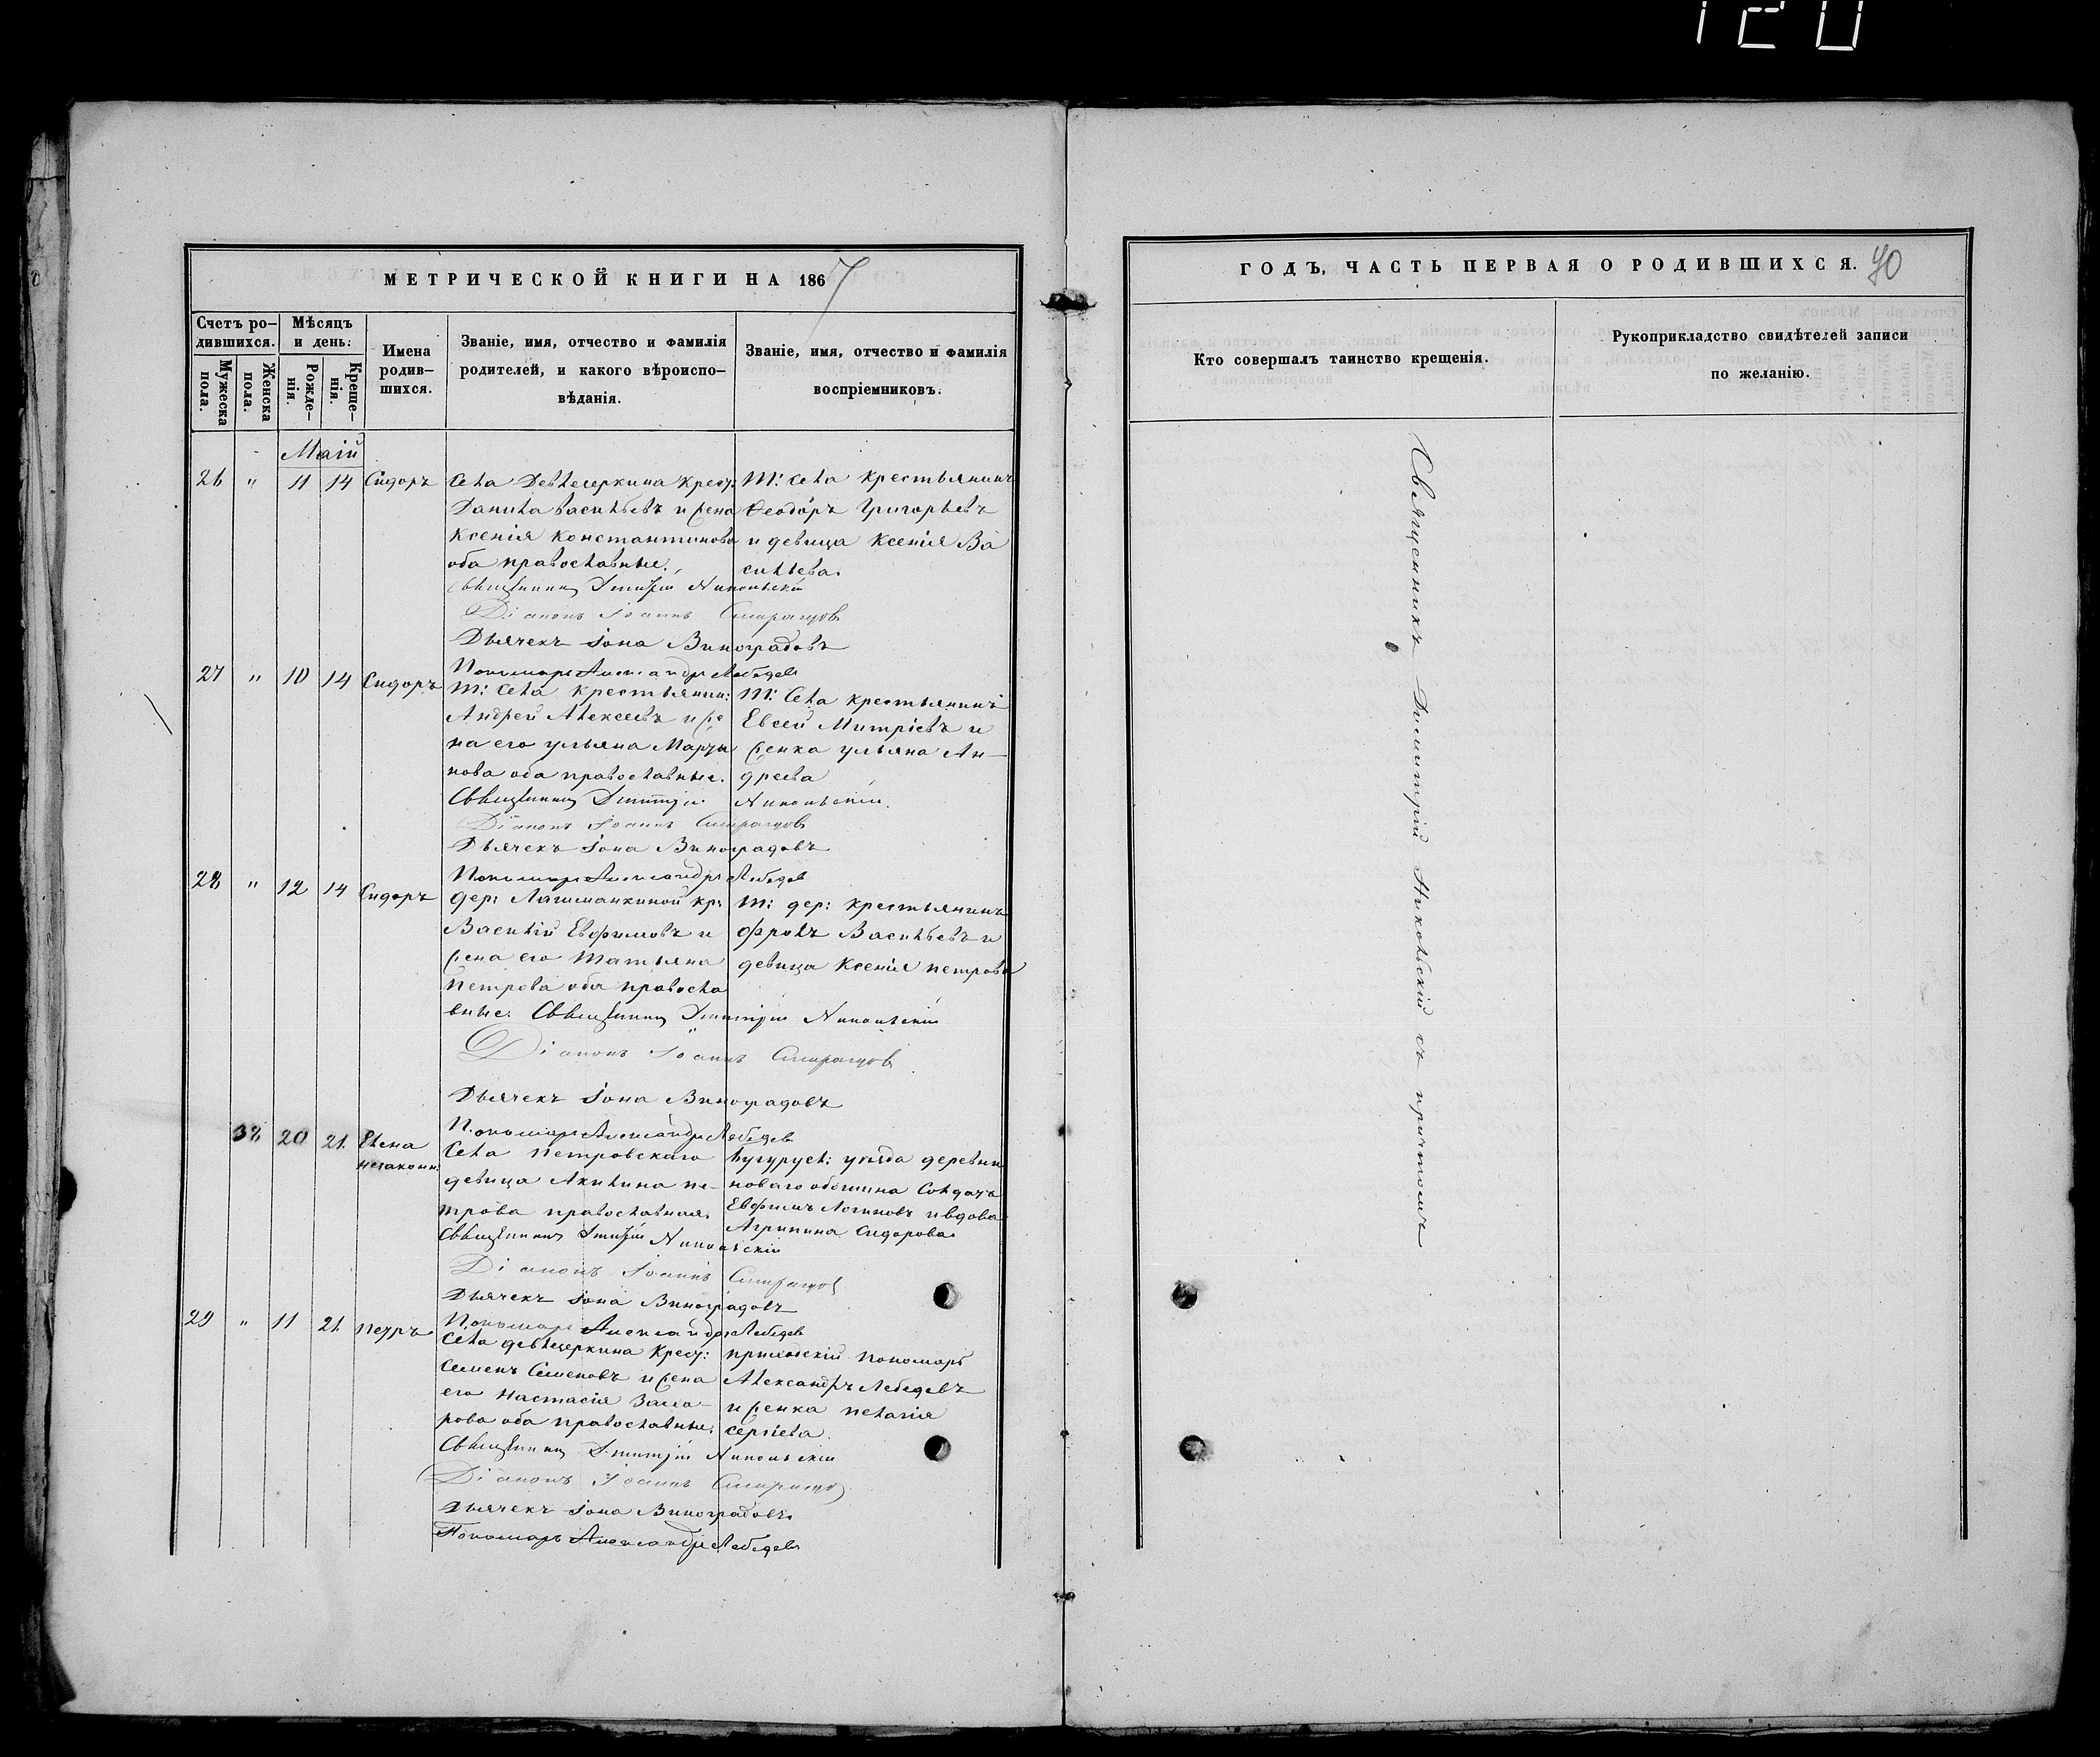 120
МЕТРИЧЕСКОЙ КНИГИ НА 1867
Счетъ ро-
дившихся.
Мужеска
пола.
Женска
пола.
Мѣсяцъ
и день:
Рожде-
нія.
Креще-
нія.
Имена
родив-
шихся.
Званіе, имя, отчество и фамилія
родителей, и какого вѣроиспо-
вѣданія.
Званіе, имя, отчество и фамилія
воспріемниковъ.
Маій
26 " 11 14 Сидоръ
Села Девлезеркина крест:
Данила Васильевъ и жена
Ксенія Константинова
оба православные.
Т: села крестьянинъ
Феодоръ Григорьевъ
и девица Ксенія Ва
сильева.
Священникъ Димитрій Никольскій
Діаконъ Іоаннъ
Дьячекъ Іона Виноградовъ
Пономарь Александръ Лебедевъ
27 " 10 14 Сидоръ
Т: села крестьянин:
Андрей Алексеевъ и же
на его Ульяна Марты
нова оба православные.
Т: Села крестьянинъ
Евсей Митріевъ и
женка Ульяна Ан-
дреева
Священникъ Димитрій Никольскій.
Діаконъ Іоаннъ
Дьячекъ Іона Виноградовъ
Пономарь Александръ Лебедевъ
28 " 12 14 Сидоръ
дер: Лашманкиной кр:
Василій Евфимовъ и
жена его Татьяна
Петрова оба правосла
вные.
Т: дер: крестьянинъ
Фролъ Васильевъ и
девица Ксенія Петрова
Священникъ Димитрій Никольскій
Діаконъ Іоаннъ
Дьячекъ Іона Виноградовъ
Пономарь Александръ Лебедевъ
38 20 21. Елена
незаконн:
Села Петровскаго
девица Акилина Пе-
трова православная.
Бугурусл: уѣзда деревни
новаго солдатъ
Евфимъ Логиновъ и вдова
Агрипина Сидорова.
Священникъ Димитрій Никольскій
Діаконъ Іоаннъ
Дьячекъ Іона Виноградовъ
Пономарь Александръ Лебедевъ
29 " 11 21. Петръ
Села Девлезеркина крест:
Семенъ Семеновъ и жена
его Настасія
оба православные.
пономарь
Александръ Лебедевъ
и женка Пелагія
Сергіева.
Священникъ Димитрій Никольскій
Діаконъ Іоаннъ
Дьячекъ Іона Виноградовъ.
Пономарь Александръ Лебедевъ
ГОДЪ, ЧАСТЬ ПЕРВАЯ О РОДИВШИХСЯ. 40
Кто совершалъ таинство крещенія.
Рукоприкладство свидѣтелей записи
по желанію.
Священникъ Димитрій Никольскій съ причтомъ